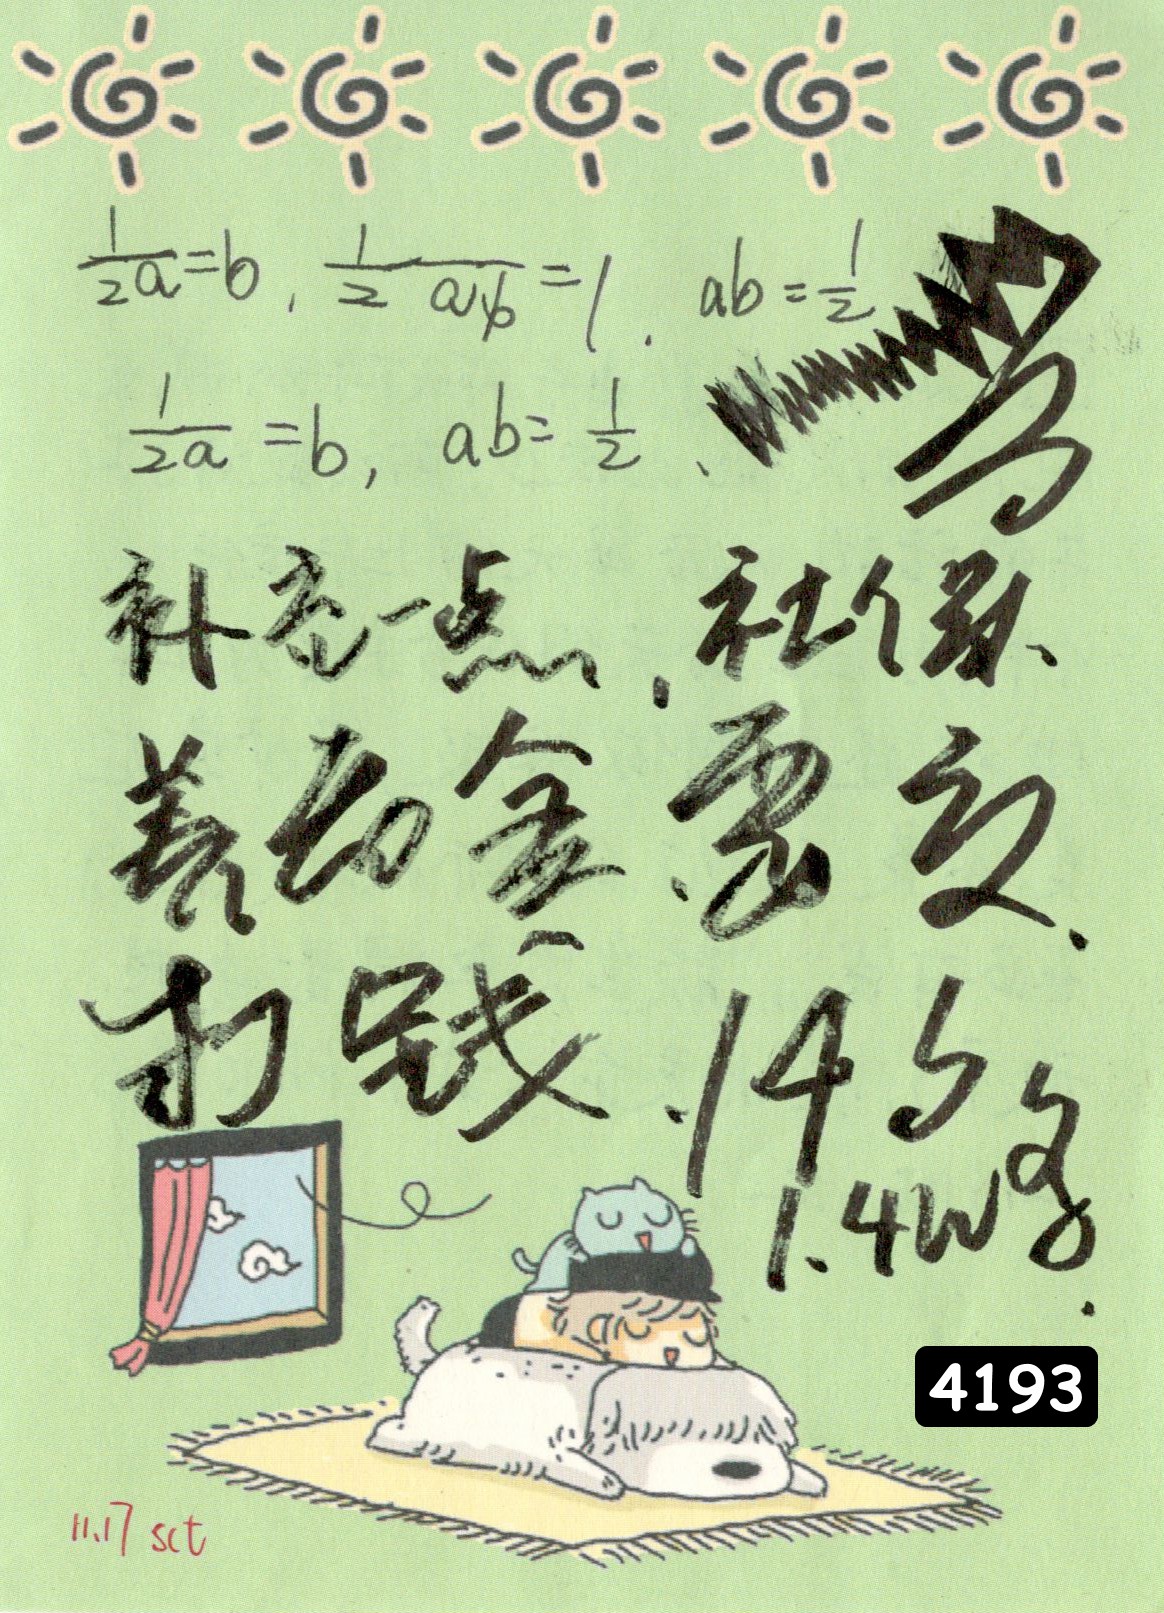 1/2a=b, 1/2 ab=1. ab=1/2
1/2a=b, ab=1/2、
补充一点、社保、
养老金、要交、
打钱、14
1.4w
4193
11.17 sct